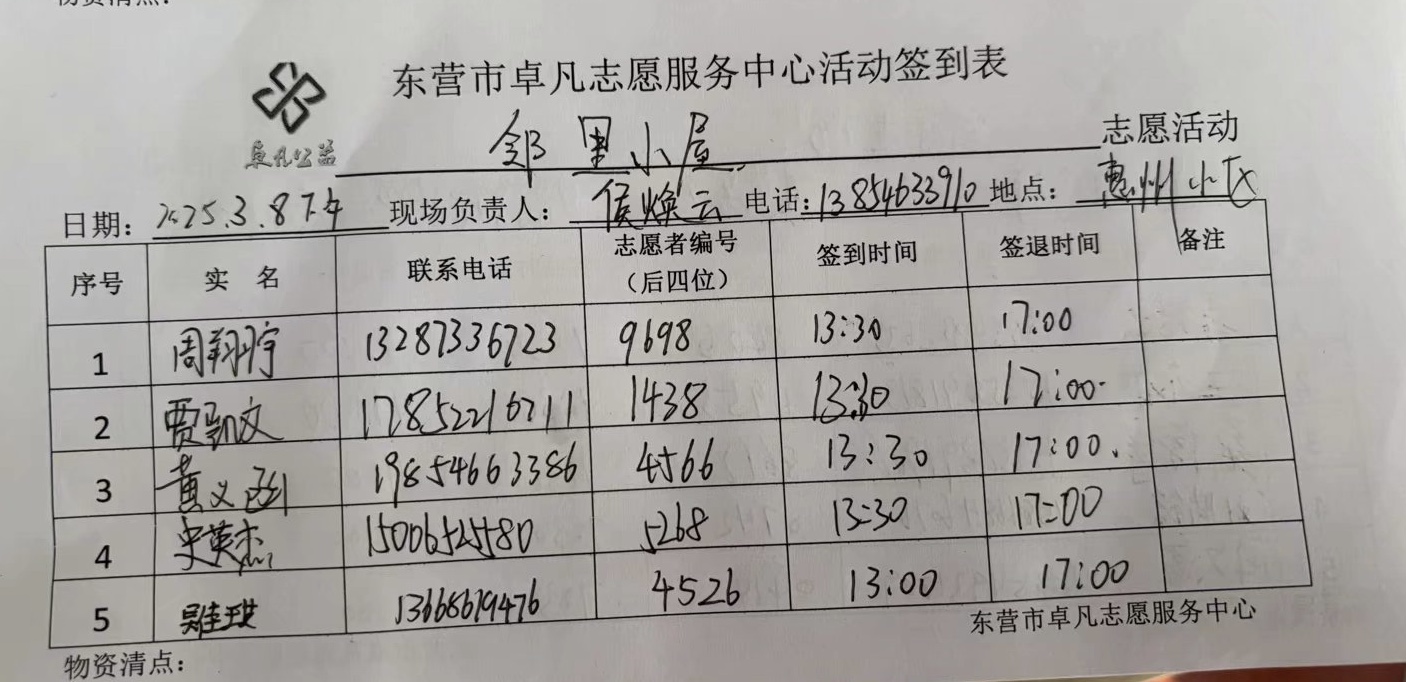 物资清点：
东营市卓凡志愿服务中心活动签到表
卓凡公益
邻里小屋 志愿活动
日期：2025.3.8下午 现场负责人：侯焕云 电话：13854633910 地点：惠州小区
序号 实 名 联系电话 志愿者编号（后四位） 签到时间 签退时间 备注
1 周翔宇 13287336723 9698 13:30 17:00
2 贾凯文 17852216211 1438 13:30 17:00
3 黄义函 19854663386 4566 13:30 17:00
4 史英杰 15006525580 5268 13:30 17:00
5 13668619476 4526 13:00 17:00
东营市卓凡志愿服务中心
物资清点：